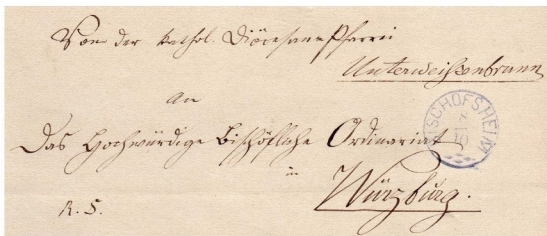 Von der kathol. Diöcesan-Pfarrei
Unterweißenbrunn
an
Das Hochwürdige Bischöfliche Ordinariat
in
Würzburg.
R. S.
BISCHOFSHEIM